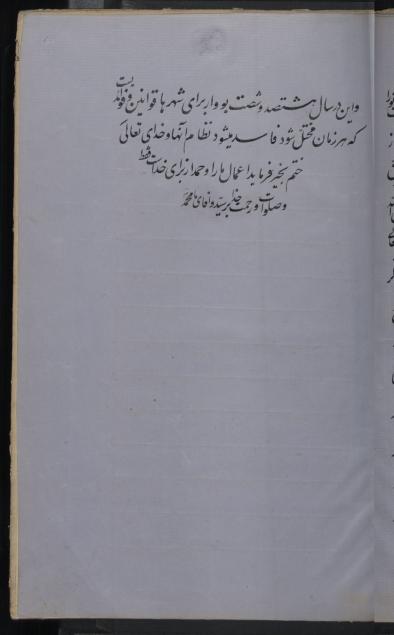 و این در سال هشتصد و شصت بود و از برای شهرها قوانین و قواعدیست
که هر زمان مختل شود فاسد میشود نظام آنها و خدای تعالی
ختم بخیر فرماید اعمال ما را و حمد از برای خداست فقط
و صلوات و رحمت خدا بر سید و آقای ما محمد